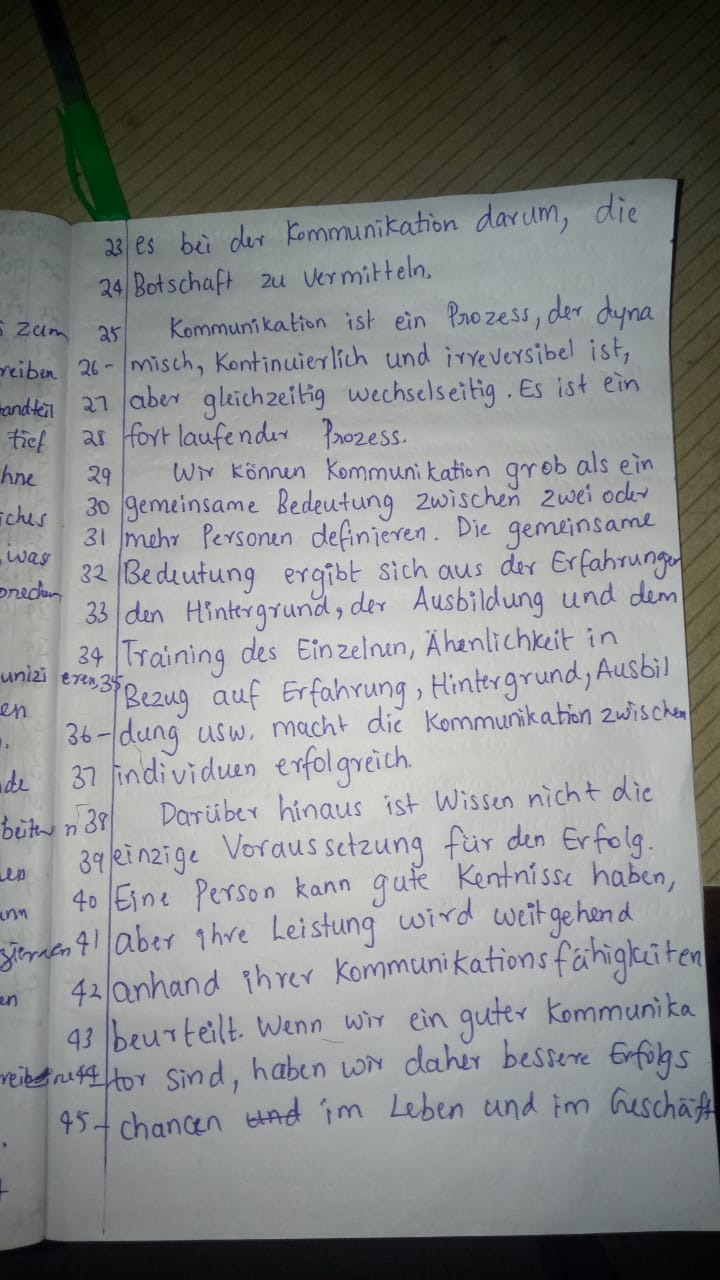 23 es bei der Kommunikation darum, die
24 Botschaft zu vermitteln.
zum 25 Kommunikation ist ein Prozess, der dyna
reiben 26 - misch, Kontinuierlich und irreversibel ist,
andteil 27 aber gleichzeitig wechselseitig. Es ist ein
tief 28 fortlaufender Prozess.
hne 29 Wir können Kommunikation grob als ein
iches 30 gemeinsame Bedeutung zwischen zwei oder
was 31 mehr Personen definieren. Die gemeinsame
prechen 32 Bedeutung ergibt sich aus der Erfahrungen
33 den Hintergrund, der Ausbildung und dem
34 Training des Einzelnen, Ähenlichkeit in
unizi eren, 35 Bezug auf Erfahrung, Hintergrund, Ausbil
en 36 - dung usw. macht die Kommunikation zwischen
de 37 individuen erfolgreich.
beiten n 38 Darüber hinaus ist Wissen nicht die
en 39 einzige Voraussetzung für den Erfolg.
ann 40 Eine Person kann gute Kentnisse haben,
zieren 41 aber ihre Leistung wird weitgehend
en 42 anhand ihrer Kommunikationsfähigkeiten
43 beurteilt. Wenn wir ein guter Kommunika
44 tor sind, haben wir daher bessere Erfolgs
45 - chancen und im Leben und im Geschäft